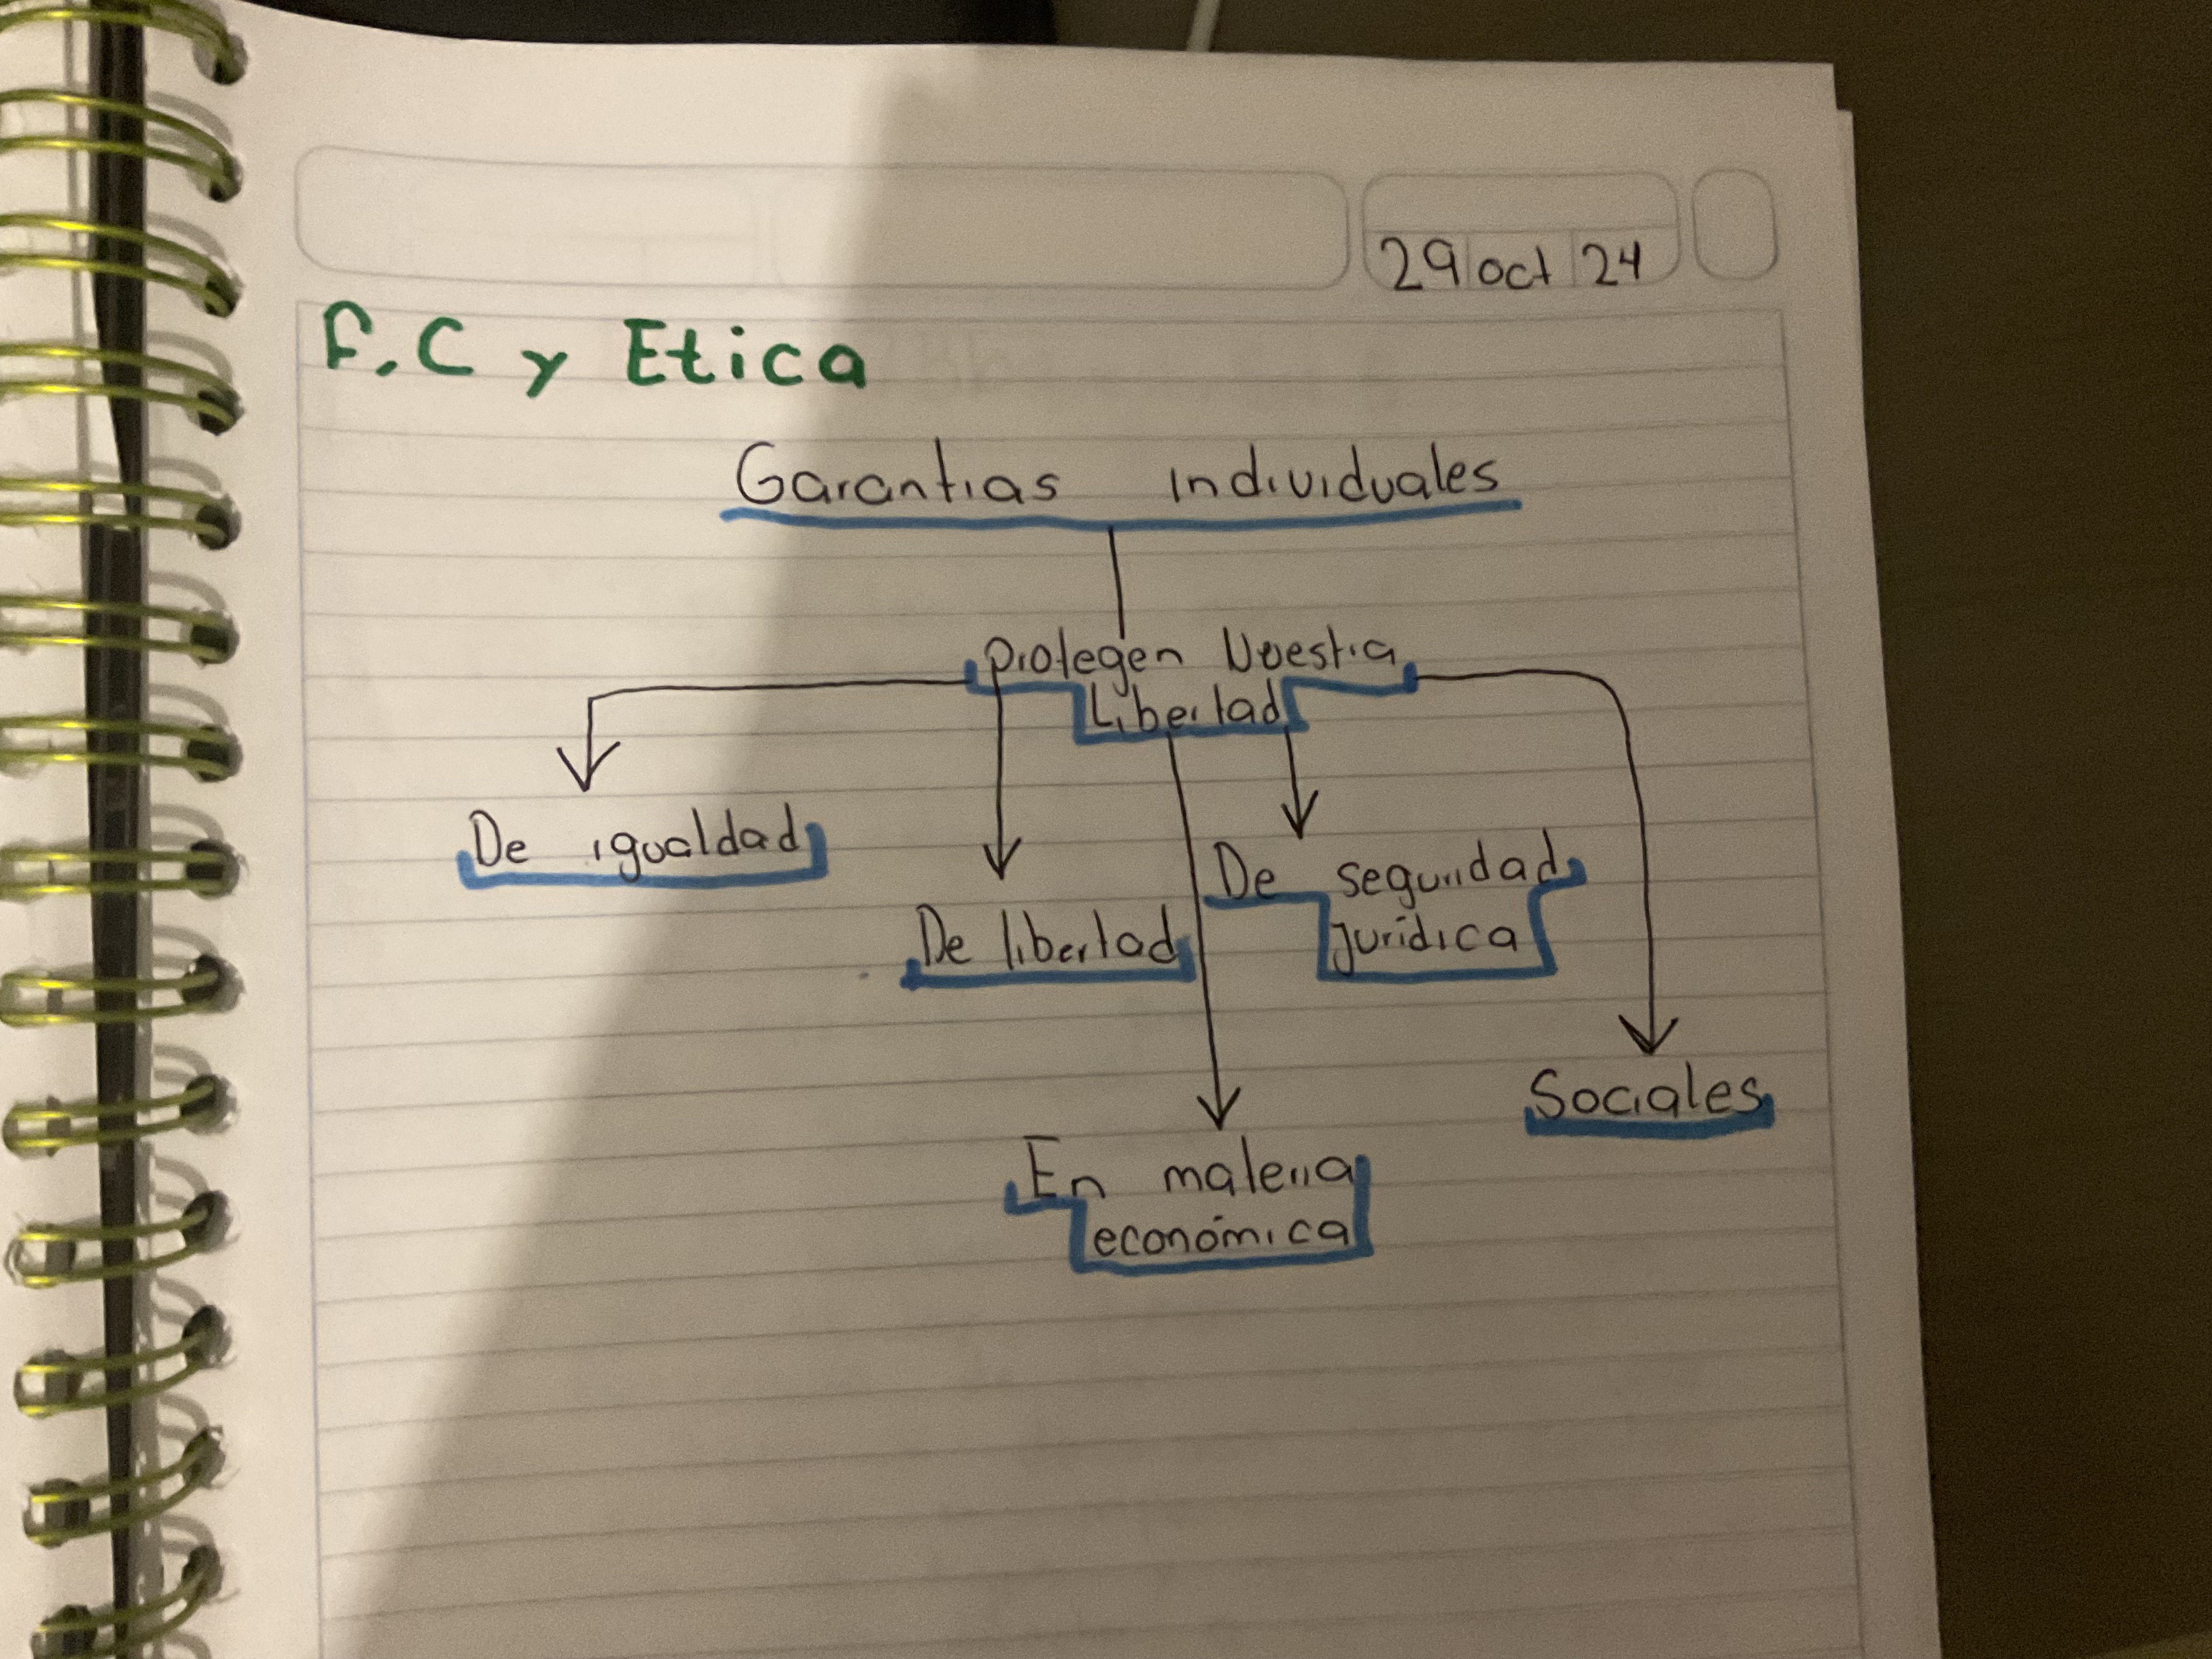 29 oct 24
F.C y Etica
Garantias individuales
protegen Nuestra
Libertad
De igualdad
De seguridad
jurídica
De libertad
Sociales
En materia
económica